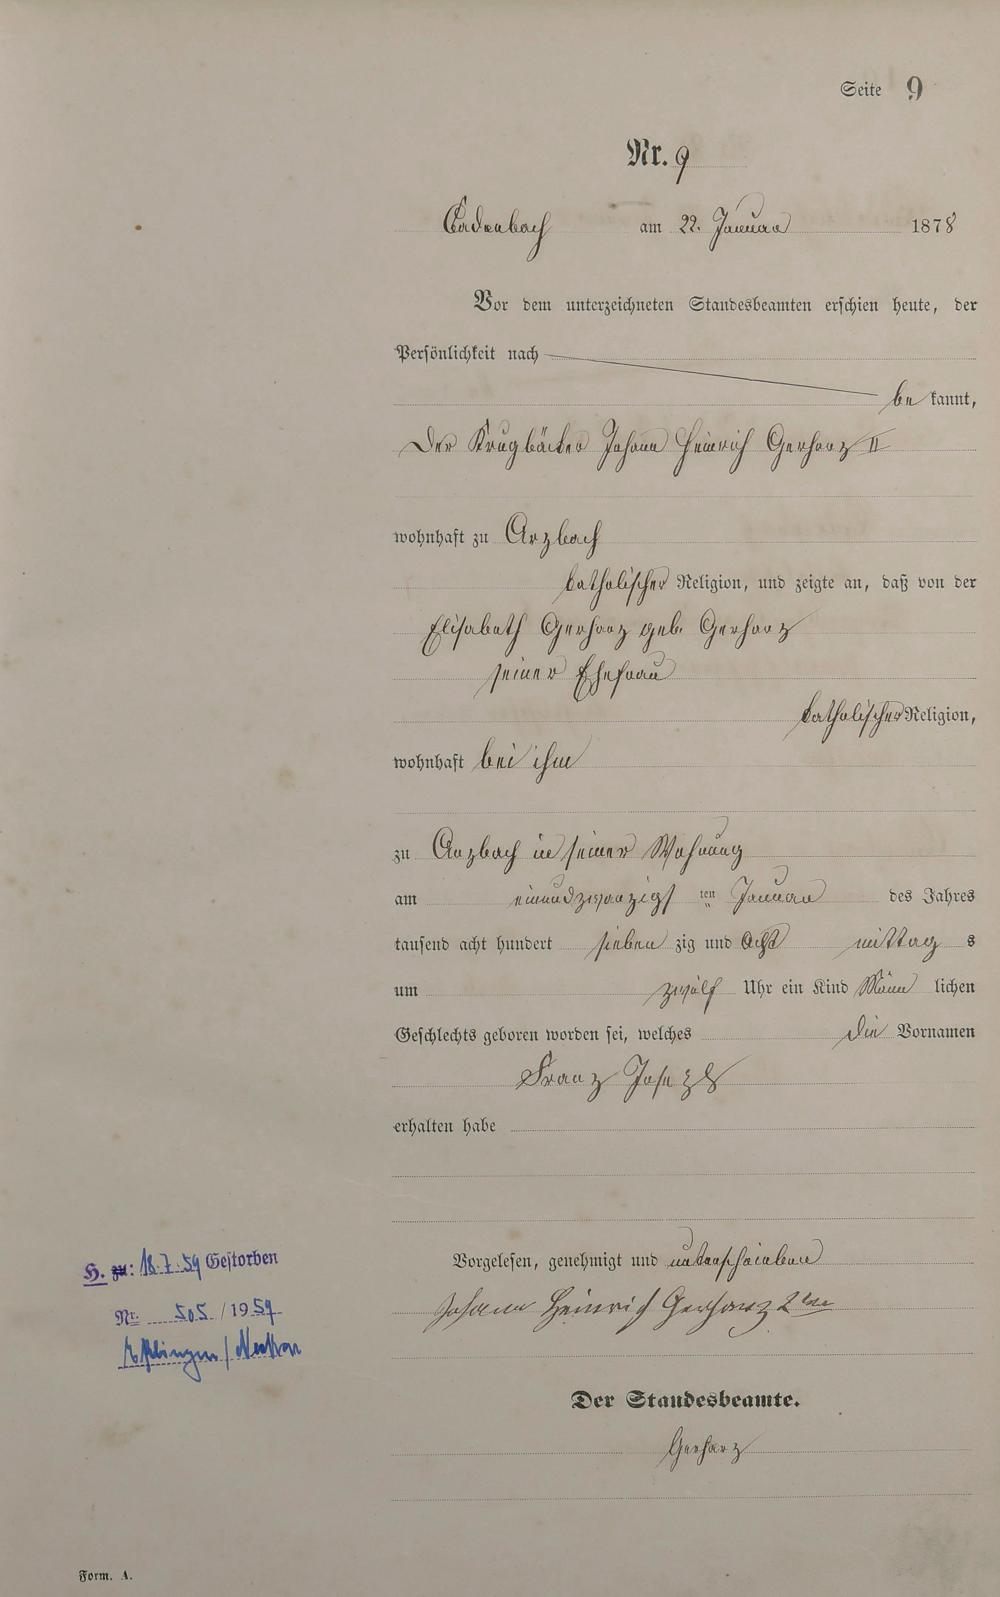 Seite 9
Nr. 9
Cadenbach am 22. Januar 1878
Vor dem unterzeichneten Standesbeamten erschien heute, der
Persönlichkeit nach
be kannt,
Der Krugbäcker Johann Heinrich Gerharz II
wohnhaft zu Arzbach
katholischer Religion, und zeigte an, daß von der
Elisabeth Gerharz geb. Gerharz
seiner Ehefrau
katholischer Religion,
wohnhaft bei ihm
zu Arzbach in seiner Wohnung
am einundzwanzigs ten Januar des Jahres
tausend acht hundert sieben zig und acht mittag s
um zwölf Uhr ein Kind Männ lichen
Geschlechts geboren worden sei, welches die Vornamen
Franz Josef
erhalten habe
Vorgelesen, genehmigt und unterschrieben
Johann Heinrich Gerharz 2ter
Der Standesbeamte.
Gerharz
H. zu: 18.7.59 Gestorben
Nr. 505 / 1959
Eßlingen / Neckar
Form. A.